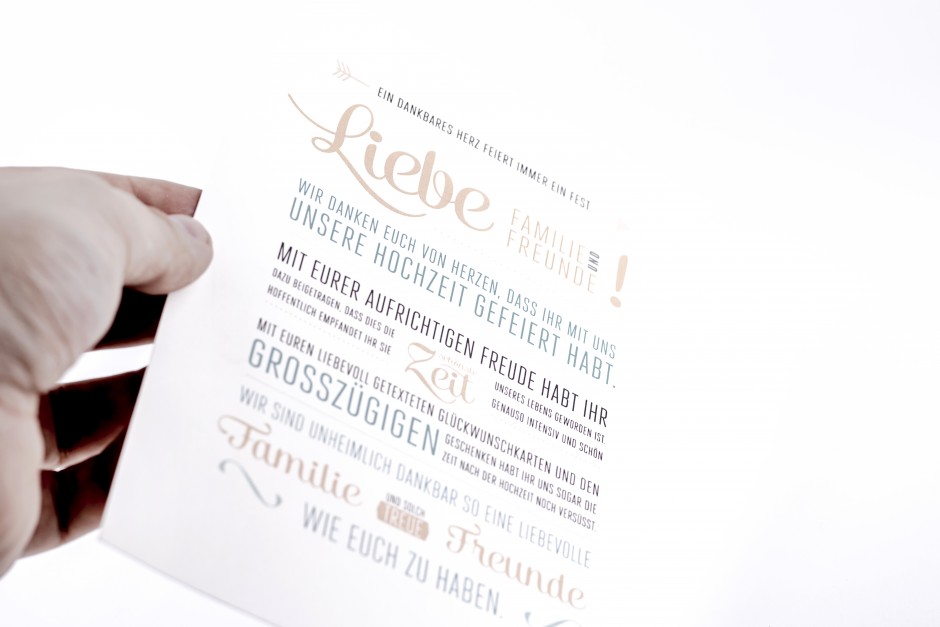 EIN DANKBARES HERZ FEIERT IMMER EIN FEST
Liebe
FAMILIE UND
FREUNDE !
WIR DANKEN EUCH VON HERZEN, DASS IHR MIT UNS
UNSERE HOCHZEIT GEFEIERT HABT.
MIT EURER AUFRICHTIGEN FREUDE HABT IHR
DAZU BEIGETRAGEN, DASS DIES DIE
schönste
Zeit
UNSERES LEBENS GEWORDEN IST.
HOFFENTLICH EMPFANDET IHR SIE
GENAUSO INTENSIV UND SCHÖN
MIT EUREN LIEBEVOLL GETEXTETEN GLÜCKWUNSCHKARTEN UND DEN
GROSSZÜGIGEN
GESCHENKEN HABT IHR UNS SOGAR DIE
ZEIT NACH DER HOCHZEIT NOCH VERSÜSST.
WIR SIND UNHEIMLICH DANKBAR SO EINE LIEBEVOLLE
Familie
UND SOLCH
TREUE
Freunde
WIE EUCH ZU HABEN.